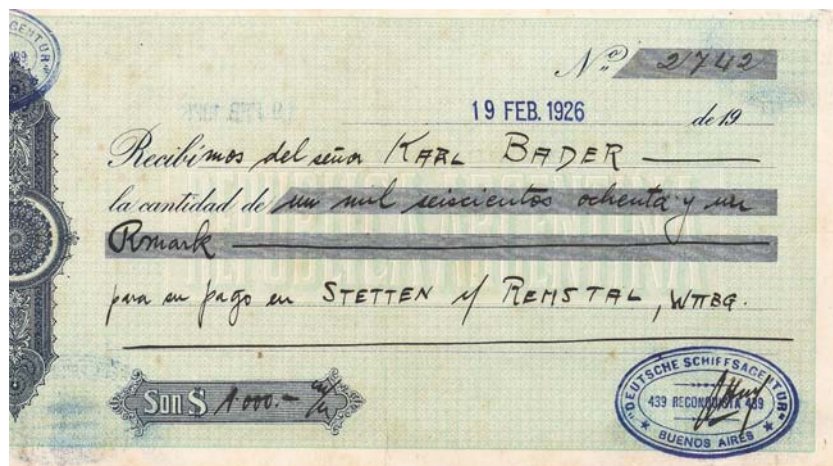 Nº 2742
19 FEB. 1926 de 19
Recibimos del señor KARL BADER
la cantidad de un mil seiscientos ochenta y un
Rmark
para su pago en STETTEN i/ REMSTAL, WTTBG.
Son $ 1000.- m/n
"DEUTSCHE SCHIFFSAGENTUR"
439 RECONQUISTA 439
BUENOS AIRES